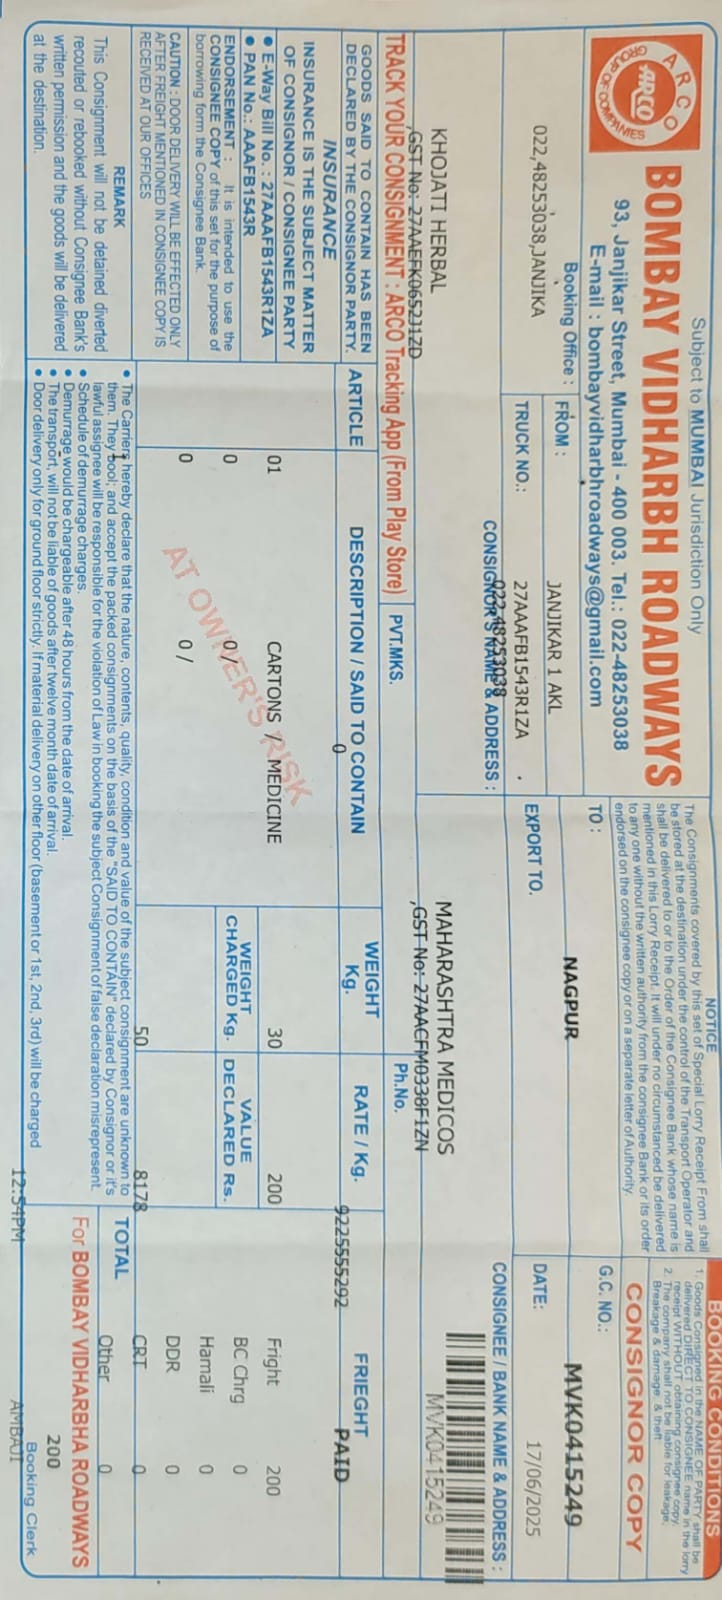 Subject to MUMBAI Jurisdiction Only
ARCO
GROUP OF COMPANIES
ARCO
BOMBAY VIDHARBH ROADWAYS
93, Janjikar Street, Mumbai - 400 003. Tel.: 022-48253038
E-mail : bombayvidharbhroadways@gmail.com
NOTICE
The Consignments covered by this set of Special Lorry Receipt From shall
be stored at the destination under the control of the Transport Operator and
shall be delivered to or to the Order of the Consignee Bank whose name is
mentioned in this Lorry Receipt. It will under no circumstanced be delivered
to any one without the written authority from the consignee Bank or its order
endorsed on the consignee copy or on a separate letter of Authority.
BOOKING CONDITIONS
1. Goods Consigned in the NAME OF PARTY shall be
delivered DIRECT TO CONSIGNEE name in the lorry
receipt WITHOUT obtaining consignee copy.
2. The company shall not be liable for leakage,
Breakage & damage & theft
CONSIGNOR COPY
Booking Office :
022,48253038,JANJIKA
FROM :
JANJIKAR 1 AKL
TO :
NAGPUR
G.C. NO.:
MVK0415249
TRUCK NO.:
27AAAFB1543R1ZA
EXPORT TO.
DATE:
17/06/2025
CONSIGNOR'S NAME & ADDRESS :
022-48253038
KHOJATI HERBAL
,GST No: 27AAEFK0652J1ZD
MAHARASHTRA MEDICOS
,GST No: 27AACFM0338F1ZN
CONSIGNEE / BANK NAME & ADDRESS :
MVK0415249
TRACK YOUR CONSIGNMENT : ARCO Tracking App (From Play Store)
PVT.MKS.
Ph.No.
9225555292
GOODS SAID TO CONTAIN HAS BEEN
DECLARED BY THE CONSIGNOR PARTY.
INSURANCE
INSURANCE IS THE SUBJECT MATTER
OF CONSIGNOR / CONSIGNEE PARTY
• E-Way Bill No. : 27AAAFB1543R1ZA
• PAN No.: AAAFB1543R
ENDORSEMENT : It is intended to use the
CONSIGNEE COPY of this set for the purpose of
borrowing form the Consignee Bank.
CAUTION : DOOR DELIVERY WILL BE EFFECTED ONLY
AFTER FREIGHT MENTIONED IN CONSIGNEE COPY IS
RECEIVED AT OUR OFFICES
REMARK
This Consignment will not be detained diverted
recouted or rebooked without Consignee Bank's
written permission and the goods will be delivered
at the destination.
ARTICLE
DESCRIPTION / SAID TO CONTAIN
0
WEIGHT Kg.
RATE / Kg.
FRIEGHT
PAID
01
CARTONS / MEDICINE
30
200
Fright 200
0
0 /
WEIGHT CHARGED Kg.
VALUE DECLARED Rs.
BC Chrg 0
Hamali 0
0
0 /
DDR 0
AT OWNER'S RISK
50
8178
CRT 0
Other 0
TOTAL
200
• The Carriers hereby declare that the nature, contents, quality, condition and value of the subject consignment are unknown to
them. They bool; and accept the packed consignments on the basis of the "SAID TO CONTAIN" declared by Consignor or it's
lawful assignee will be responsible for the violation of Law in booking the subject Consignment of false declaration misrepresent.
• Schedule of demurrage charges.
• Demurrage would be chargeable after 48 hours from the date of arrival.
• The transport, will not be liable of goods after twelve month date of arrival.
• Door delivery only for ground floor strictly. If material delivery on other floor (basement or 1st, 2nd, 3rd) will be charged
For BOMBAY VIDHARBHA ROADWAYS
12:54PM
AMBAJI
Booking Clerk